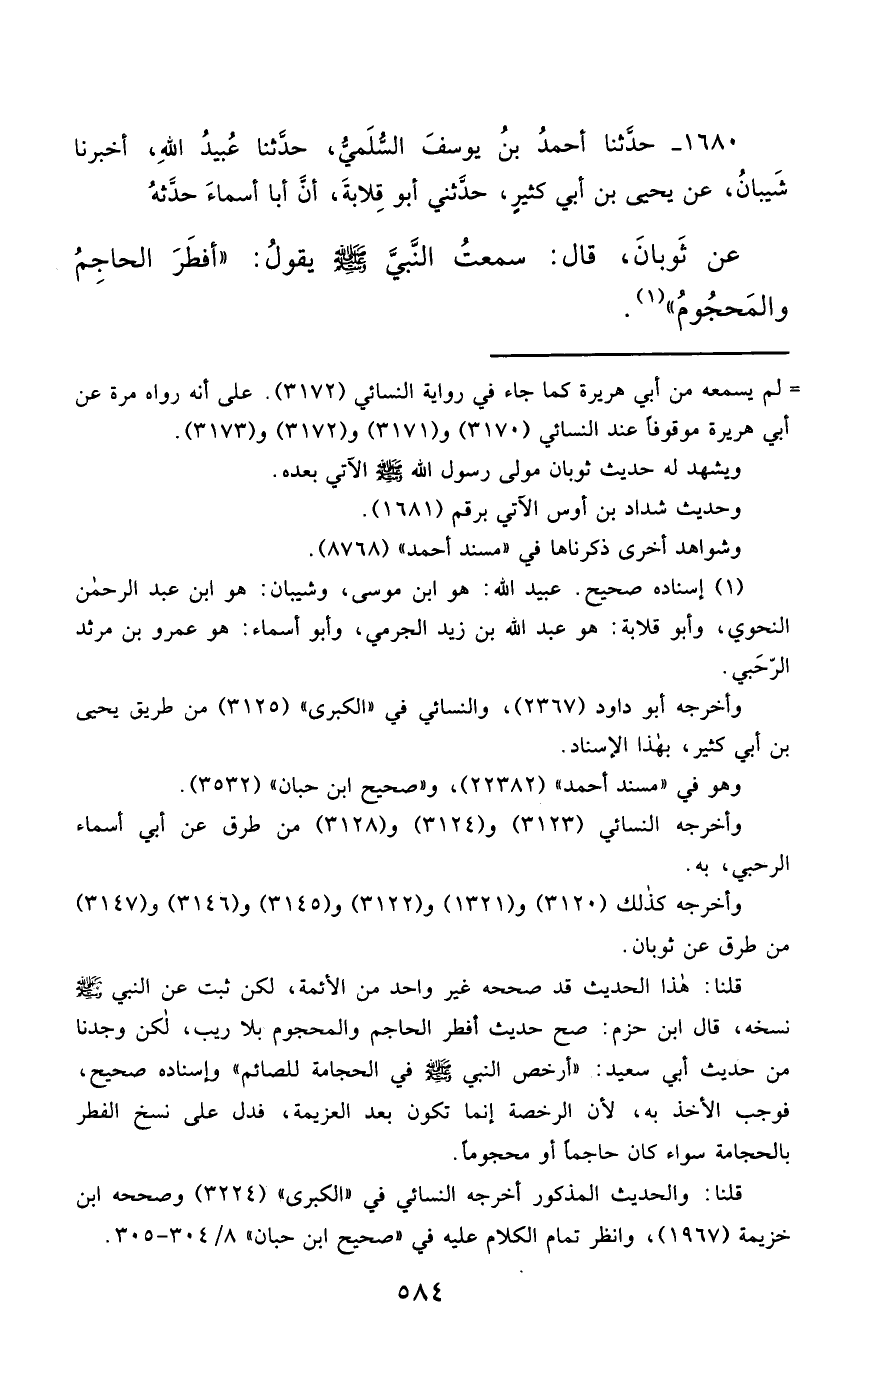 ١٦٨٠- حدَّثنا أحمدُ بنُ يوسفَ السُّلَميُّ، حدَّثنا عُبيدُ اللهِ، أخبرنا
شَيبانُ، عن يحيى بن أبي كثيرٍ، حدَّثني أبو قِلابةَ، أنَّ أبا أسماءَ حدَّثهُ
عن ثَوبانَ، قال: سمعتُ النَّبيَّ ﷺ يقولُ: «أفطَرَ الحاجِمُ
والمَحجُومُ»(١).
= لم يسمعه من أبي هريرة كما جاء في رواية النسائي (٣١٧٢). على أنه رواه مرة عن
أبي هريرة موقوفاً عند النسائي (٣١٧٠) و(٣١٧١) و(٣١٧٢) و(٣١٧٣).
ويشهد له حديث ثوبان مولى رسول الله ﷺ الآتي بعده.
وحديث شداد بن أوس الآتي برقم (١٦٨١).
وشواهد أخرى ذكرناها في «مسند أحمد» (٨٧٦٨).
(١) إسناده صحيح. عبيد الله: هو ابن موسى، وشيبان: هو ابن عبد الرحمٰن
النحوي، وأبو قلابة: هو عبد الله بن زيد الجرمي، وأبو أسماء: هو عمرو بن مرثد
الرّحَبي.
وأخرجه أبو داود (٢٣٦٧)، والنسائي في «الكبرى» (٣١٢٥) من طريق يحيى
بن أبي كثير، بهٰذا الإسناد.
وهو في «مسند أحمد» (٢٢٣٨٢)، و«صحيح ابن حبان» (٣٥٣٢).
وأخرجه النسائي (٣١٢٣) و(٣١٢٤) و(٣١٢٨) من طرق عن أبي أسماء
الرحبي، به.
وأخرجه كذٰلك (٣١٢٠) و(١٣٢١) و(٣١٢٢) و(٣١٤٥) و(٣١٤٦) و(٣١٤٧)
من طرق عن ثوبان.
قلنا: هٰذا الحديث قد صححه غير واحد من الأئمة، لكن ثبت عن النبي ﷺ
نسخه، قال ابن حزم: صح حديث أفطر الحاجم والمحجوم بلا ريب، لٰكن وجدنا
من حديث أبي سعيد: «أرخص النبي ﷺ في الحجامة للصائم» وإسناده صحيح،
فوجب الأخذ به، لأن الرخصة إنما تكون بعد العزيمة، فدل على نسخ الفطر
بالحجامة سواء كان حاجماً أو محجوماً.
قلنا: والحديث المذكور أخرجه النسائي في «الكبرى» (٣٢٢٤) وصححه ابن
خزيمة (١٩٦٧)، وانظر تمام الكلام عليه في «صحيح ابن حبان» ٨/ ٣٠٤-٣٠٥.
٥٨٤